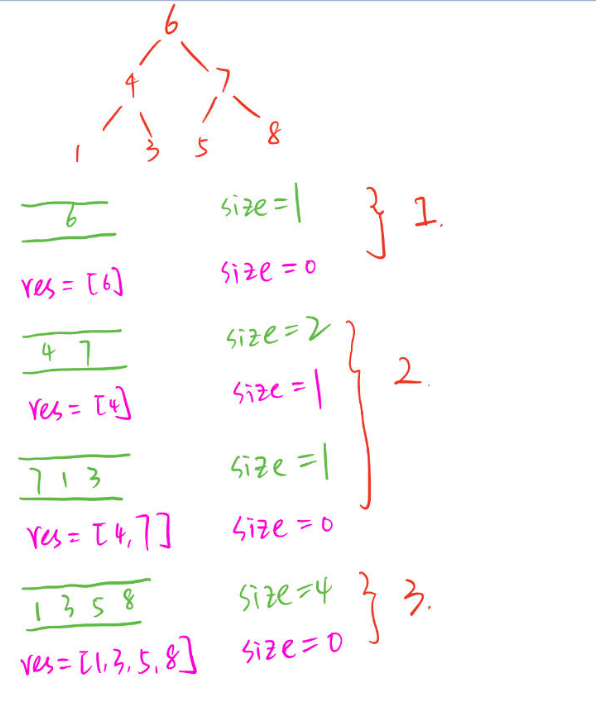 6
4 7
1 3 5 8
6 size=1
res=[6] size=0
} 1.
4 7 size=2
res=[4] size=1
} 2.
7 1 3 size=1
res=[4,7] size=0
1 3 5 8 size=4
} 3.
res=[1,3,5,8] size=0